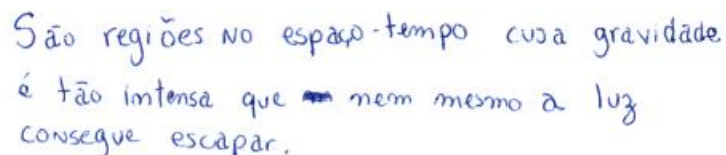 São regiões no espaço-tempo cuja gravidade
é tão intensa que nem mesmo a luz
consegue escapar.